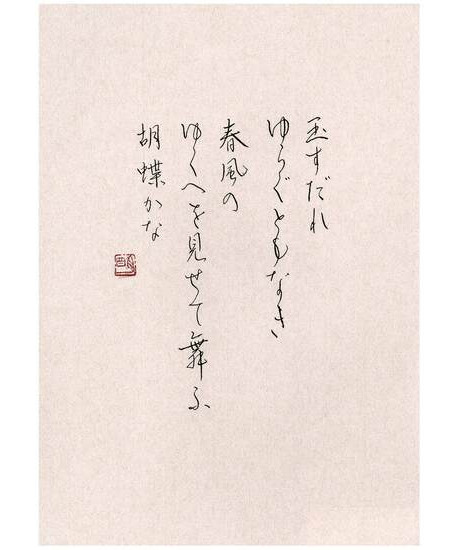 玉すだれ
ゆらぐともなき
春風の
ゆくへを見せて舞ふ
胡蝶かな